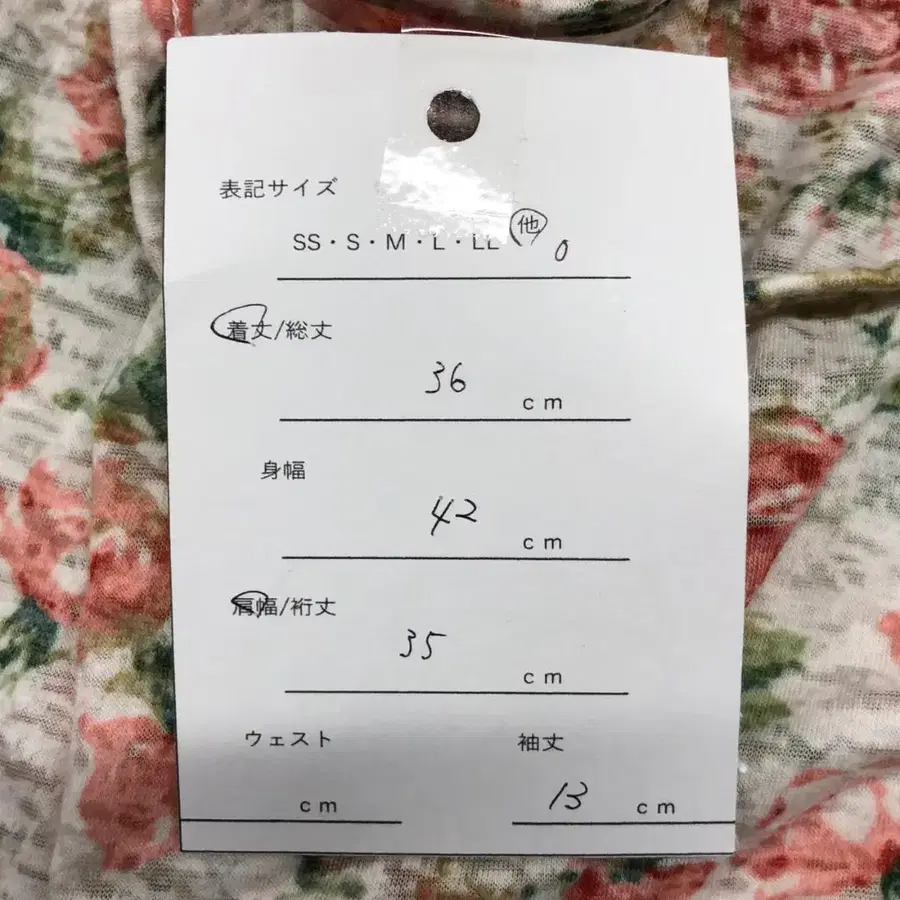 表記サイズ
SS・S・M・L・LL 他 0
着丈/総丈
36 cm
身幅
42 cm
肩幅/裄丈
35 cm
ウェスト 袖丈
cm 13 cm